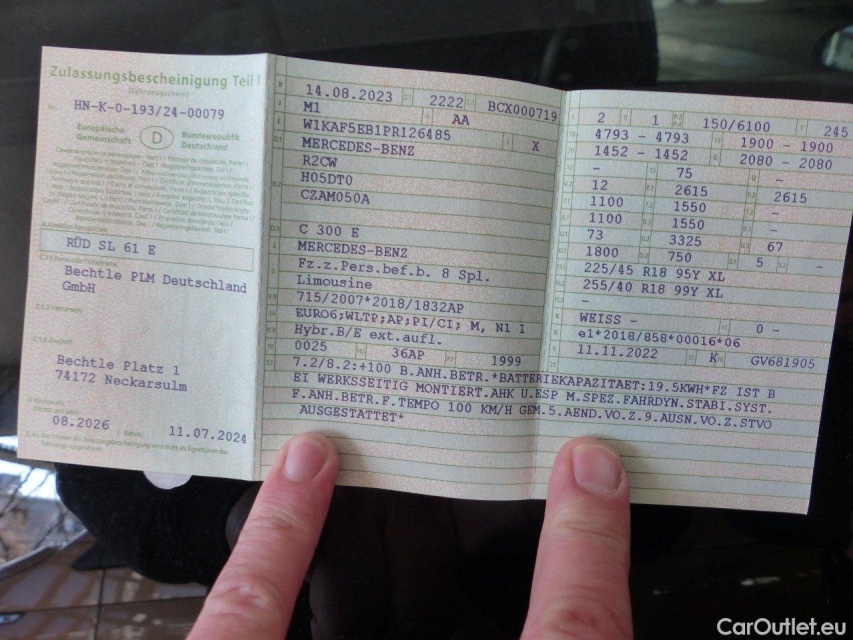 Zulassungsbescheinigung Teil I
(Fahrzeugschein)
HN-K-0-193/24-00079
Europäische Gemeinschaft
D
Bundesrepublik Deutschland
RÜD SL 61 E
Bechtle PLM Deutschland
GmbH
Bechtle Platz 1
74172 Neckarsulm
08.2026
11.07.2024
14.08.2023 2222 BCX000719
M1 AA
W1KAF5EB1PR126485
MERCEDES-BENZ X
R2CW
H05DT0
CZAM050A
C 300 E
MERCEDES-BENZ
Fz.z.Pers.bef.b. 8 Spl.
Limousine
715/2007*2018/1832AP
EURO6;WLTP;AP;PI/CI; M, N1 I
Hybr.B/E ext.aufl.
0025 36AP 1999
2 1 150/6100 245
4793 - 4793 1900 - 1900
1452 - 1452 2080 - 2080
- 75 -
12 2615 2615
1100 1550 -
1100 1550 -
73 3325 67
1800 750 5 -
225/45 R18 95Y XL
255/40 R18 99Y XL
-
WEISS - 0 -
e1*2018/858*00016*06
11.11.2022 K GV681905
7.2/8.2:+100 B.ANH.BETR.*BATTERIEKAPAZITAET:19.5KWH*FZ IST B
EI WERKSSEITIG MONTIERT.AHK U.ESP M.SPEZ.FAHRDYN.STABI.SYST.
F.ANH.BETR.F.TEMPO 100 KM/H GEM.5.AEND.VO.Z.9.AUSN.VO.Z.STVO
AUSGESTATTET*
CarOutlet.eu